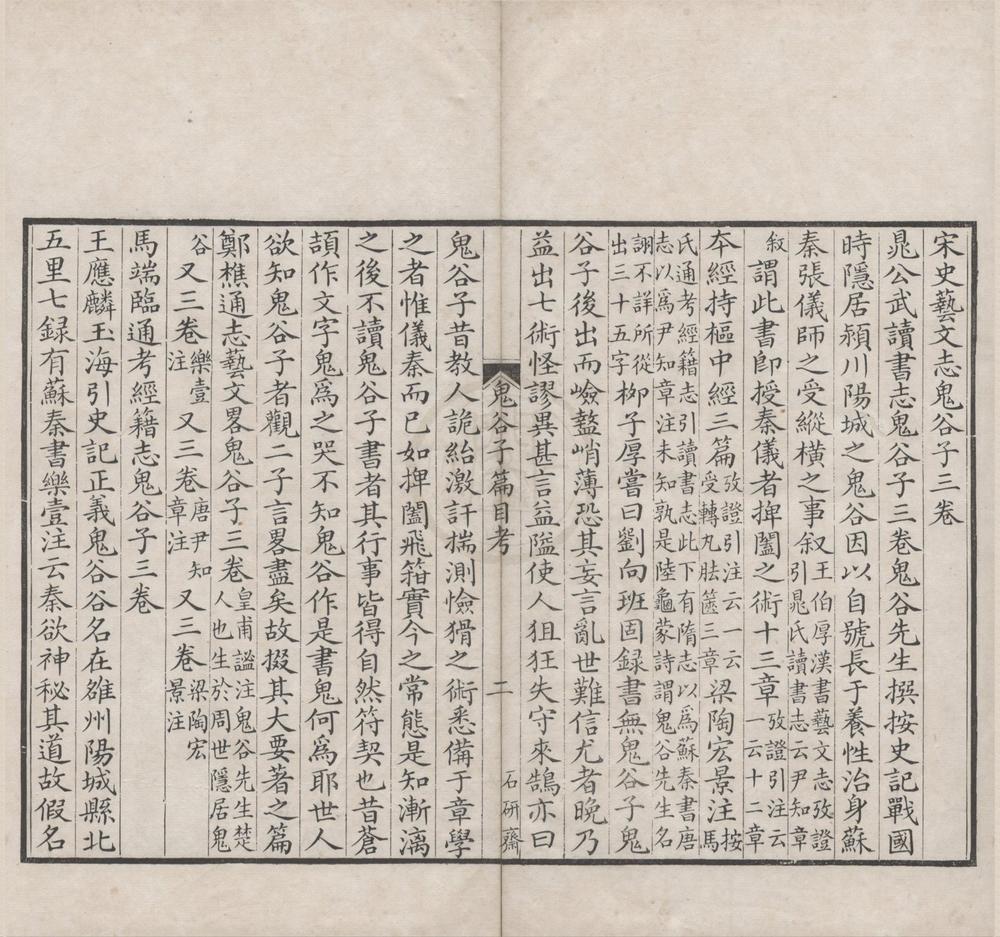 宋史藝文志鬼谷子三卷
晁公武讀書志鬼谷子三卷鬼谷先生撰按史記戰國
時隱居潁川陽城之鬼谷因以自號長于養性治身蘇
秦張儀師之受縱橫之事叙王伯厚漢書藝文志攷證引晁氏讀書志云尹知章
叙謂此書卽授秦儀者捭闔之術十三章攷證引注云一云十二章
夲經持樞中經三篇攷證引注云一云受轉丸胠篋三章梁陶宏景注按馬
氏通考經籍志引讀書志此下有隋志以爲蘇秦書唐志以爲尹知章注未知孰是陸龜蒙詩謂鬼谷先生名
詡不詳所從出三十五字桺子厚嘗曰劉向班固録書無鬼谷子鬼
谷子後出而嶮盭峭薄恐其妄言亂世難信尤者晚乃
益出七術怪謬異甚言益隘使人狙狂失守來鵠亦曰
鬼谷子篇目考
二
石研齋
鬼谷子昔教人詭紿激訐揣測憸猾之術悉備于章學
之者惟儀秦而已如捭闔飛箝實今之常態是知漸漓
之後不讀鬼谷子書者其行事皆得自然符契也昔蒼
頡作文字鬼爲之哭不知鬼谷作是書鬼何爲耶世人
欲知鬼谷子者觀二子言畧盡矣故掇其大要著之篇
鄭樵通志藝文畧鬼谷子三卷皇甫謐注鬼谷先生楚人也生於周世隱居鬼
谷又三卷樂壹注又三卷唐尹知章注又三卷梁陶宏景注
馬端臨通考經籍志鬼谷子三卷
王應麟玉海引史記正義鬼谷谷名在雒州陽城縣北
五里七録有蘇秦書樂壹注云秦欲神秘其道故假名